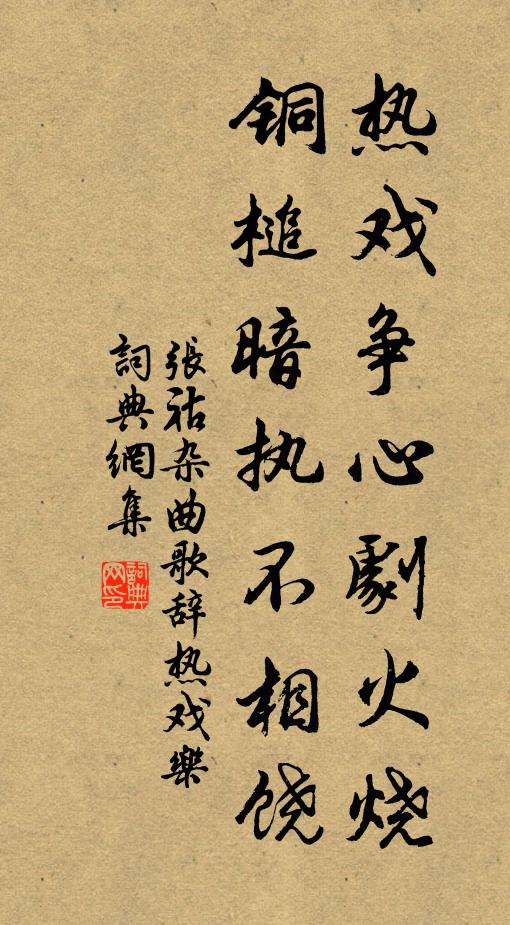 热戏争心劇火烧
铜槌暗执不相饶
張祜杂曲歌辞热戏樂
詞典網集
詞典网印